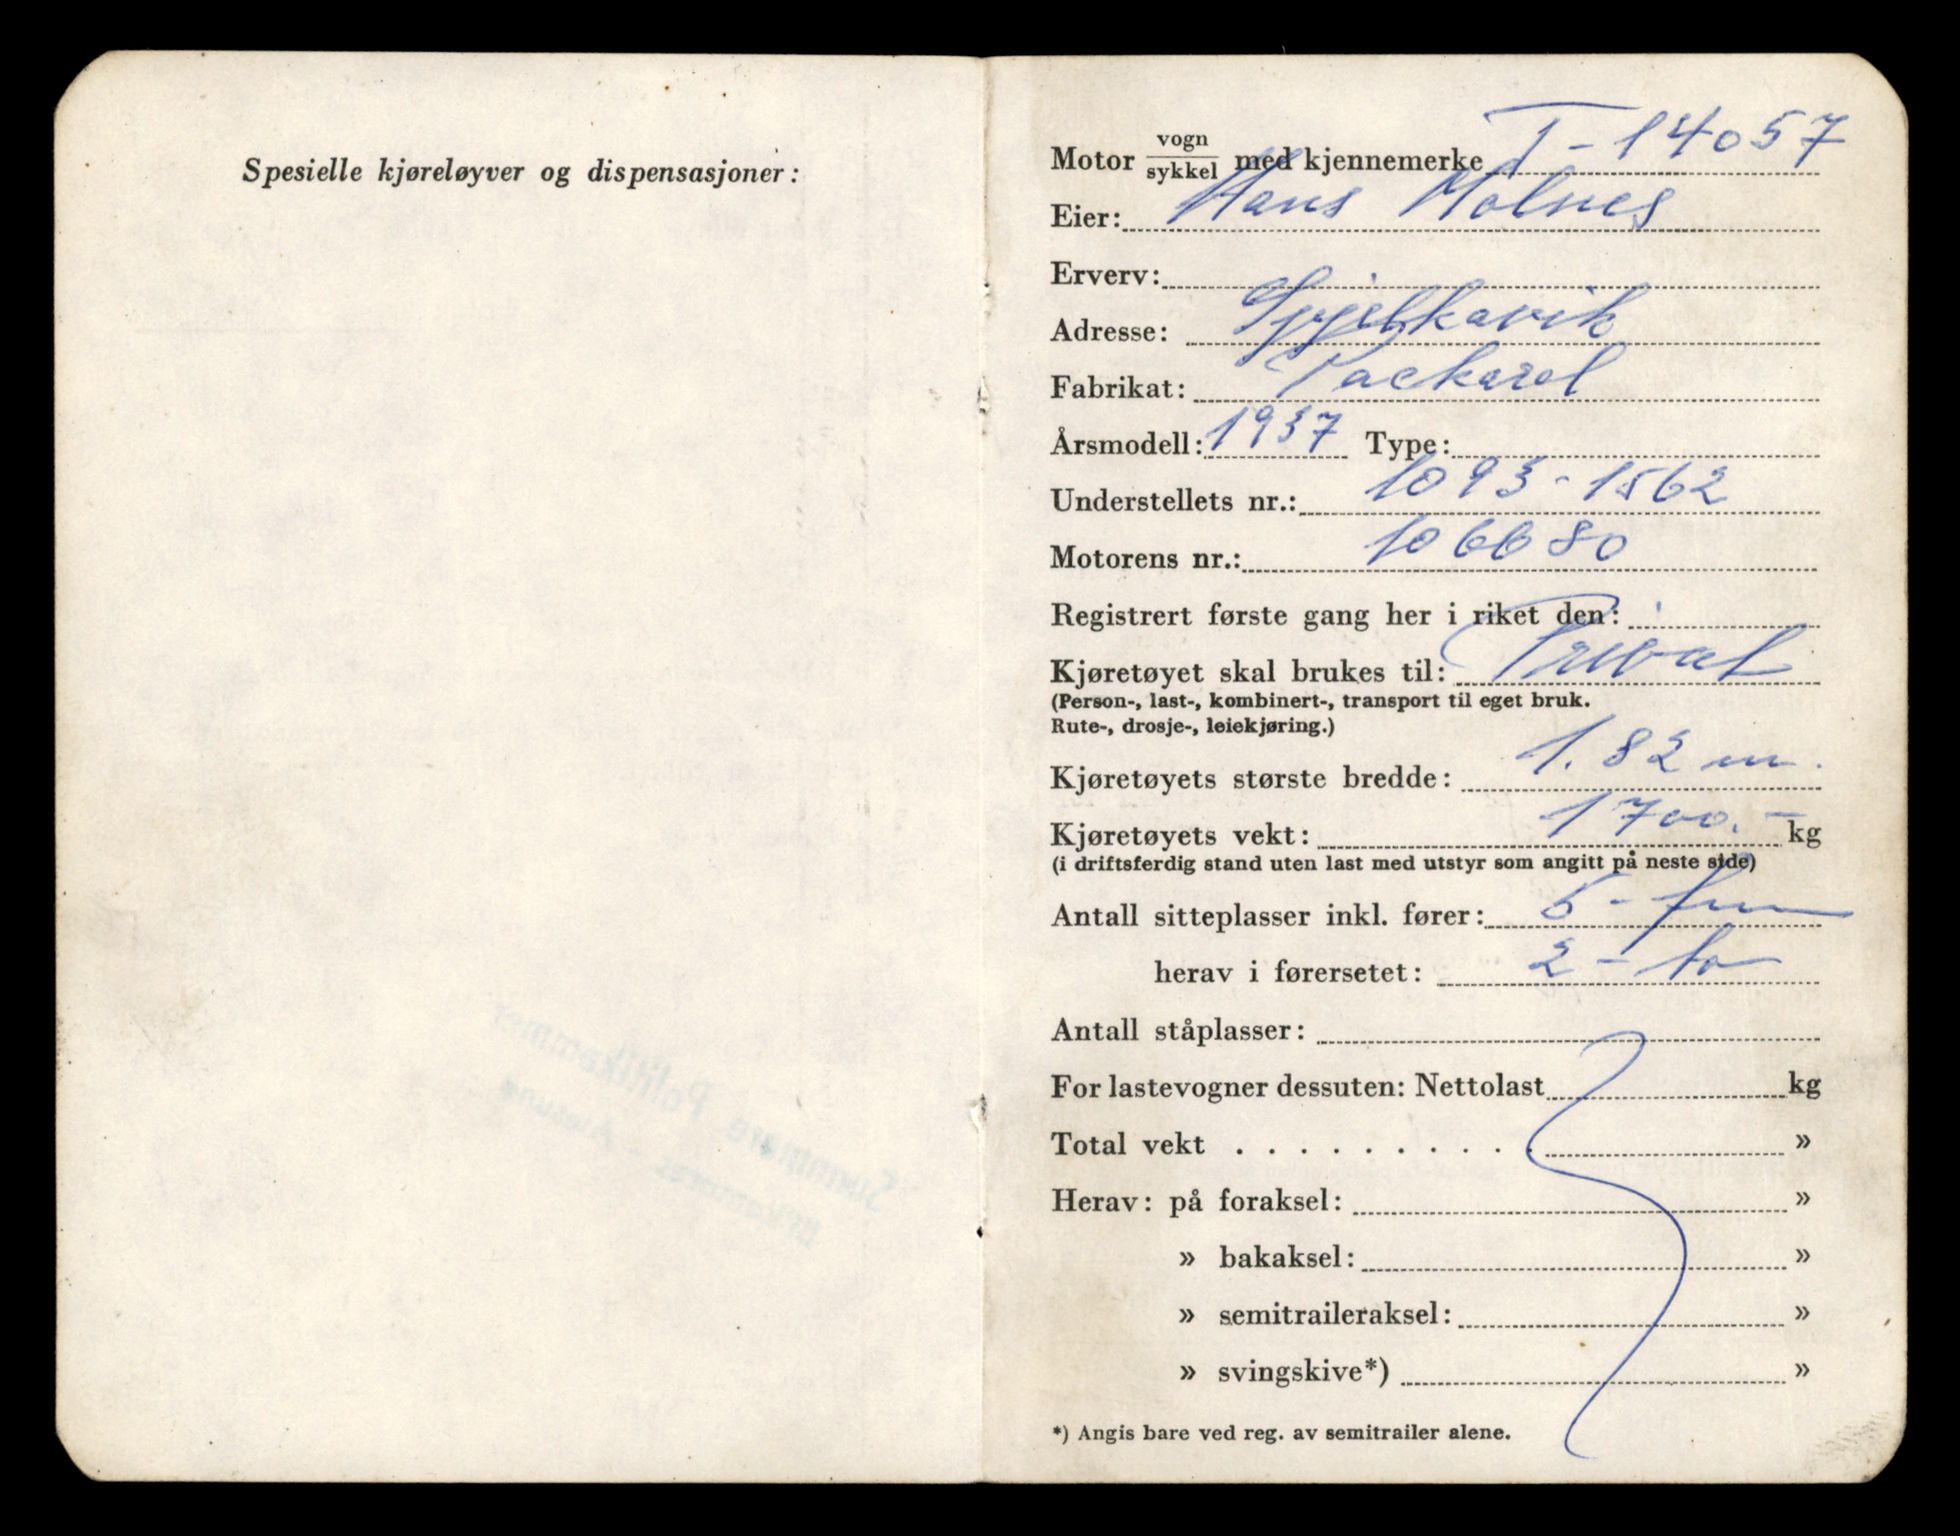 Spesielle kjøreløyver og dispensasjoner:
Motor vogn/sykkel med kjennemerke T-14057
Eier: Hans Molnes
Erverv:
Adresse: Spjelkavik
Fabrikat: Packard
Årsmodell: 1937 Type:
Understellets nr.: 1093-1562
Motorens nr.: 106680
Registrert første gang her i riket den:
Kjøretøyet skal brukes til: Privat
(Person-, last-, kombinert-, transport til eget bruk.
Rute-, drosje-, leiekjøring.)
Kjøretøyets største bredde: 1.82 m.
Kjøretøyets vekt: 1700.- kg
(i driftsferdig stand uten last med utstyr som angitt på neste side)
Antall sitteplasser inkl. fører: 5 - fem
herav i førersetet: 2 - to
Antall ståplasser:
For lastevogner dessuten: Nettolast kg
Total vekt . . . . . . . . . »
Herav: på foraksel: »
» bakaksel: »
» semitraileraksel: »
» svingskive*) »
*) Angis bare ved reg. av semitrailer alene.
Sunnmøre Politikammer